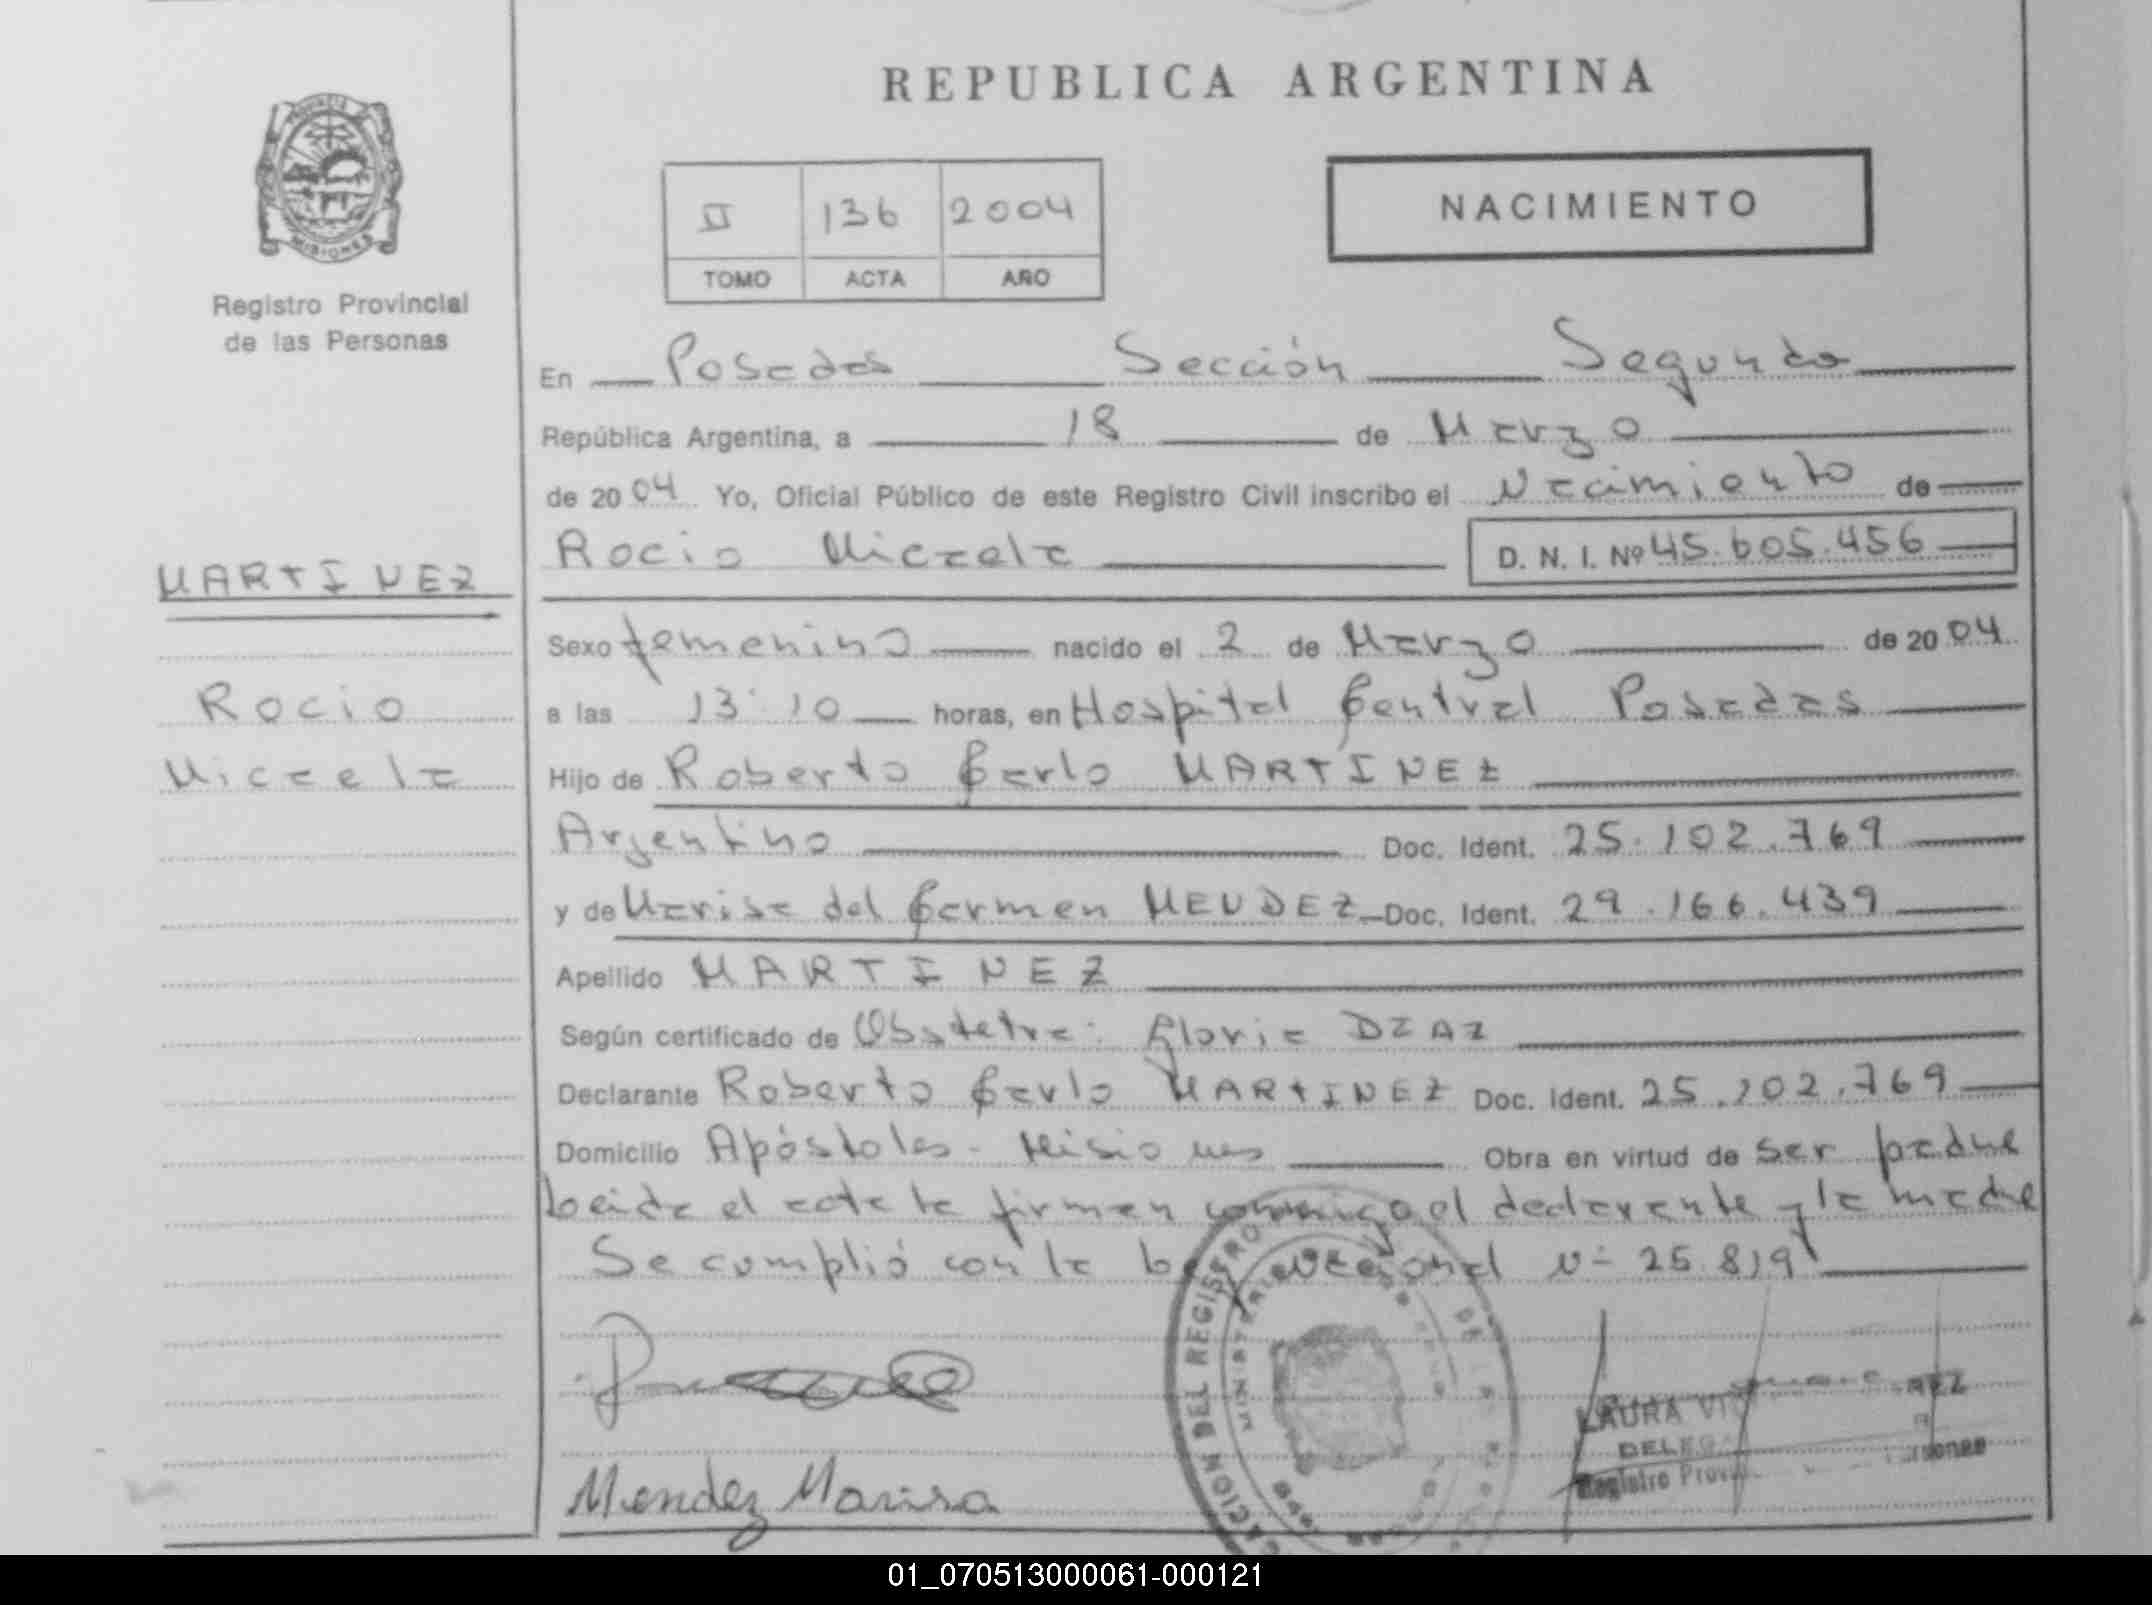 REPUBLICA ARGENTINA
PROVINCIA
MISIONES
Registro Provincial
de las Personas
II 136 2004
TOMO ACTA AÑO
NACIMIENTO
En Posadas Sección Segunda
República Argentina, a 18 de Marzo
de 2004 Yo, Oficial Público de este Registro Civil inscribo el Nacimiento de
Rocio Micaela D. N. I. Nº 45.605.456
MARTINEZ
Rocio
Micaela
Sexo femenino nacido el 2 de Marzo de 2004
a las 13:10 horas, en Hospital Central Posadas
Hijo de Roberto Carlo MARTINEZ
Argentino Doc. Ident. 25.102.769
y de Marisa del Carmen MENDEZ Doc. Ident. 29.166.439
Apellido MARTINEZ
Según certificado de Obstetra: Gloria DIAZ
Declarante Roberto Carlo MARTINEZ Doc. Ident. 25.102.769
Domicilio Apóstoles - Misiones Obra en virtud de ser padre
Leida el acta la firman conmigo el declarante y la madre
Se cumplió con la Ley Nacional Nº 25.819
Mendez Marisa
DEL REGISTRO
MINISTERIO
LAURA
Registro
01_070513000061-000121